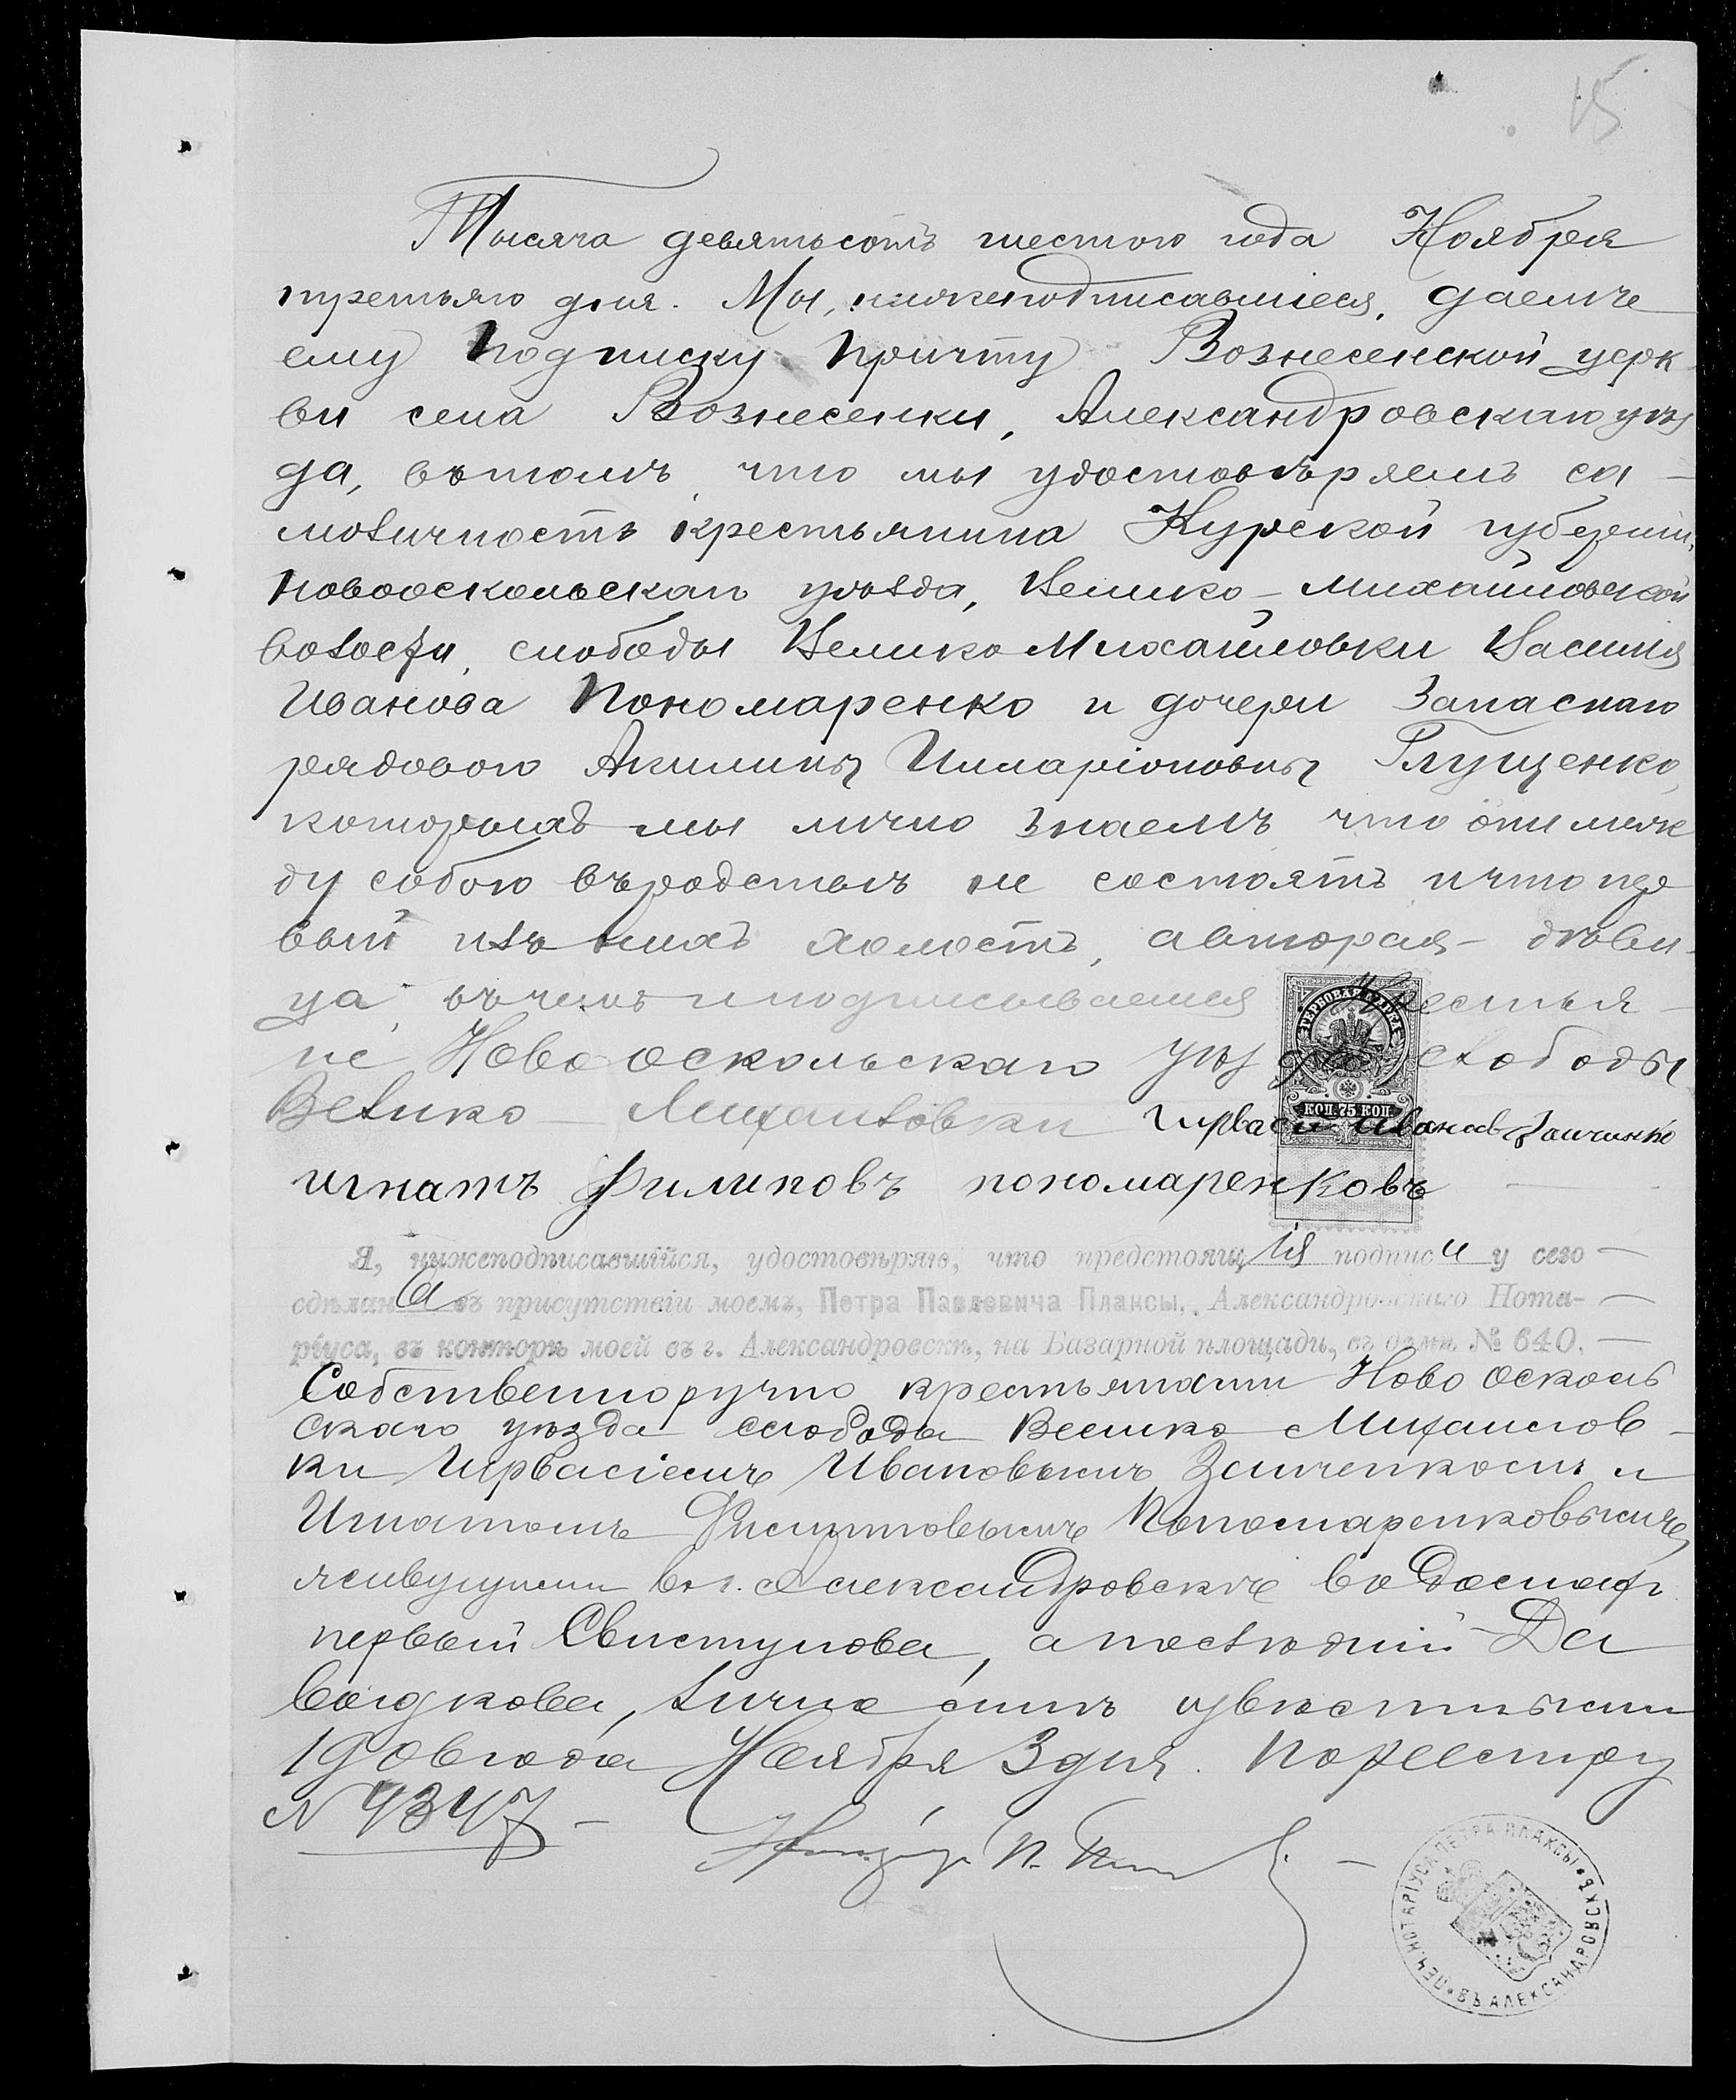 15
Тысяча девятьсотъ шестого года Ноября
третьяго дня. Мы, нижеподписавшіеся, даемъ
сму подписку Причту Вознесенской церк
ви села Вознесенки, Александровскаго уѣз
да, въ томъ, что мы удостовѣряемъ са-
моличность крестьянина Курской губерніи,
Новооскольскаго уѣзда, Велико-Михайловской
волости, слободы Велико Михайловки Василія
Иванова Пономаренко и дочери Запаснаго
рядового Акилины Илларіоновны Глущенко,
которыхъ мы лично знаемъ что они меж
ду собою въ родствѣ не состоятъ и что пер
вый изъ нихъ холостъ, а вторая - дѣви-
ца, въ чемъ и подписываемся Крестья-
не Ново оскольскаго уѣзда слободы
Велико-Михайловки Гирваси Иванов Заиченко
игнатъ Филиповъ пономаренковъ
Я, нижеподписавшійся, удостовѣряю, что предстоящія подписи у сего
сдѣланы въ присутствіи моемъ, Петра Павловича Плаксы, Александровскаго Нота-
ріуса, въ конторѣ моей въ г. Александровскѣ, на Базарной площади, въ домѣ № 640.
Собственноручно крестьянами Ново Осколь
скаго уѣзда слободы Велико Михайлов-
ки Гирвасіемъ Ивановымъ Заиченкомъ и
Игнатомъ Филипповымъ Пономаренковымъ,
живущими въ г. Александровскѣ въ домахъ
первый Свистунова, а послѣдній Да
выдкова, лично мнѣ извѣстными
1906 года Ноября 3 дня. По реестру
№ 4347 -
Нотаріусъ П. Плакса
ГЕРБОВАЯ МАРКА
КОП. 75 КОП.
ПЕЧ. НОТАРІУСА ПЕТРА ПЛАКСЫ ВЪ АЛЕКСАНДРОВСКѢ